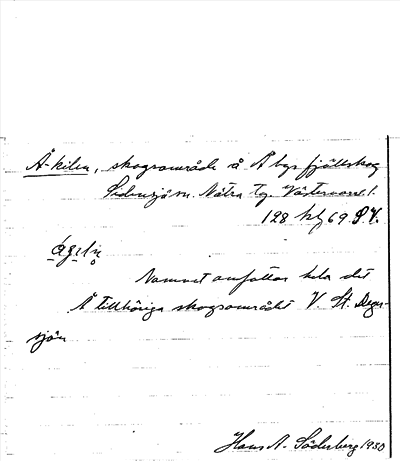 Å-kilen, skogsområde å Å bys fjällskog
Sidensjö sn. Nätra tg. Västernorrl.
128 kbl 69 S.V.
Namnet omfattar hela det
Å tillhöriga skogsområdet V. St. Deger-
sjön
Hans A. Söderberg 1950